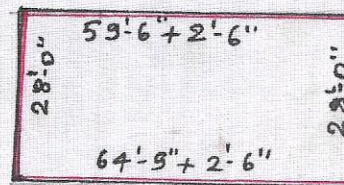 59'-6"+ 2'-6"
28'-0"
28'-0"
64'-9"+ 2'-6"